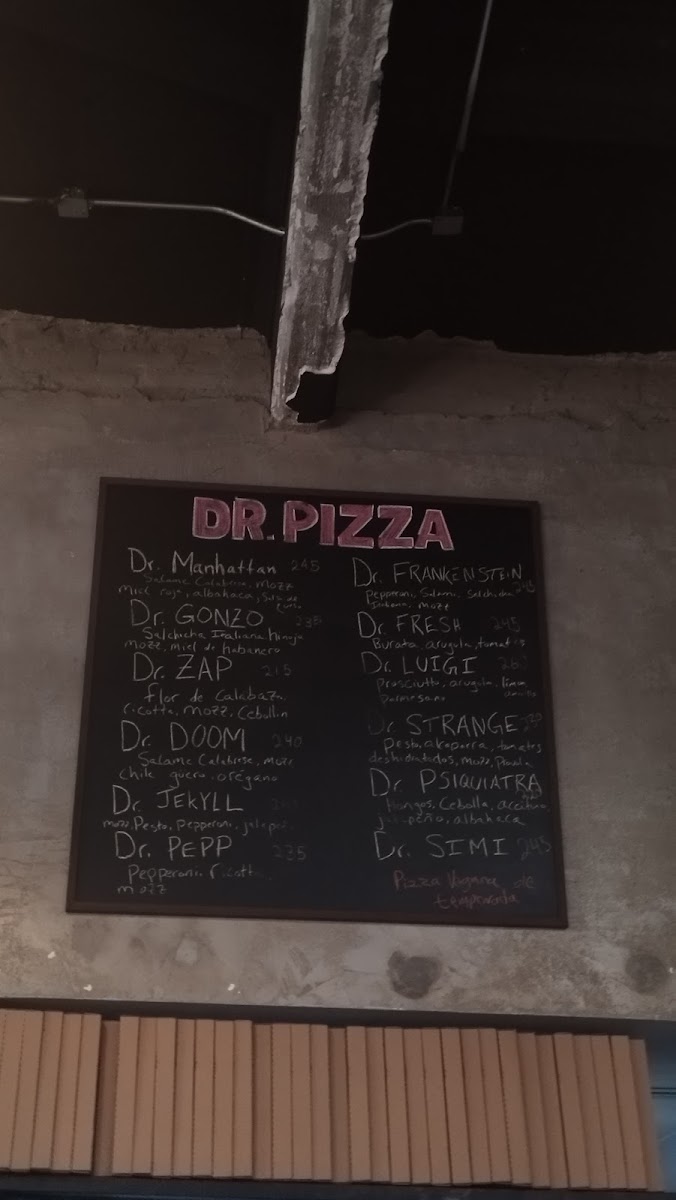 DR. PIZZA
Dr. Manhattan 245
Salame Calabrese, mozz
miel roja, albahaca,
Dr. GONZO 235
Salchicha Italiana hinojo
mozz, miel de habanero
Dr. ZAP 215
flor de Calabaza,
ricotta, mozz, Cebollin
Dr. DOOM 240
Salame Calabrese, mozz
chile guero, orégano
Dr. JEKYLL
mozz, Pesto, pepperoni,
Dr. PEPP 235
Pepperoni, ricotta
mozz
Dr. FRANKENSTEIN 245
Pepperoni, Salami, Salchicha
Italiana, mozz
Dr. FRESH 245
Burata, arugula, tomates
Dr. LUIGI
Prosciutto, arugula, limon
parmesano
Dr. STRANGE
Pesto, alcaparra, tomates
deshidratados, mozz,
Dr. PSIQUIATRA
Hongos, Cebolla, aceituna,
albahaca
Dr. SIMI 245
Pizza Vegana de
temporada